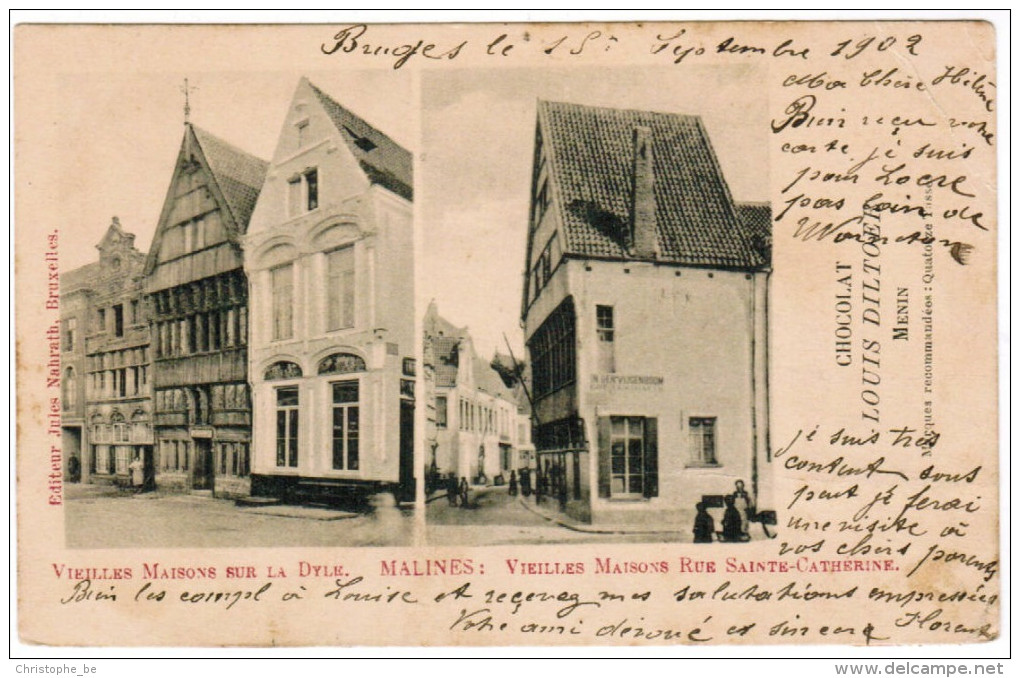 Bruges le 15 Septembre 1902
Ma Chère Hélène
Bien reçu votre
carte je suis
pour Locre
pas loin de
Warneton
CHOCOLAT
LOUIS DILTOER
MENIN
Marques recommandées : Quatorze
je suis très
content
peut je ferai
une visite à
vos chers parents
Editeur Jules Nahrath, Bruxelles.
IN DEN VIJGENBOOM
VIEILLES MAISONS SUR LA DYLE. MALINES: VIEILLES MAISONS RUE SAINTE-CATHERINE.
Bien les compl à Louise et reçevez mes salutations empressées
Votre ami dévoué et sincère Florent
Christophe_be
delcampe.net